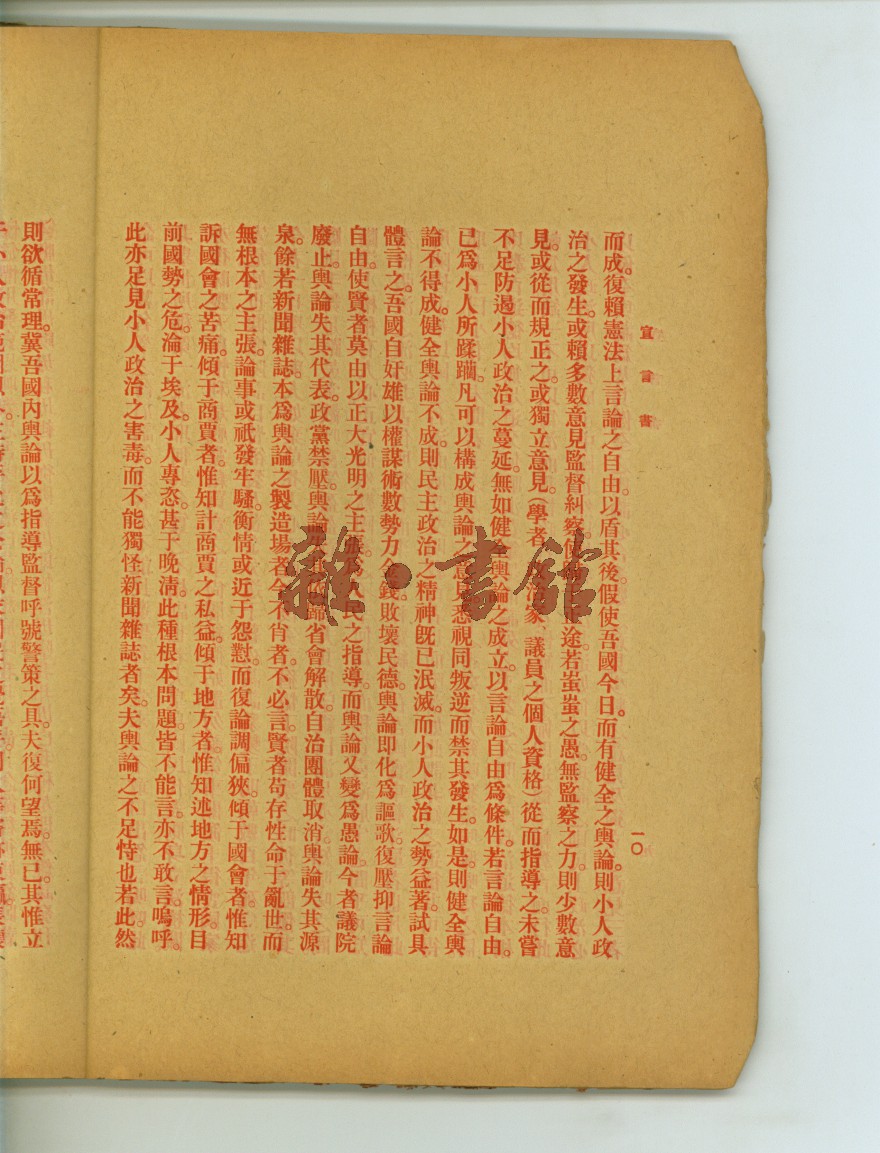 宣言書
一〇
而成。復賴憲法上言論之自由。以盾其後。假使吾國今日而有健全之輿論。則小人政
治之發生。或賴多數意見監督糾察。使途。若蚩蚩之愚。無監察之力。則少數意
見。或從而規正之。或獨立意見(學者、政治家、議員之個人資格)從而指導之。未嘗
不足防遏小人政治之蔓延。無如健全輿論之成立。以言論自由爲條件。若言論自由。
已爲小人所蹂躪。凡可以構成輿論之意見。悉視同叛逆而禁其發生。如是。則健全輿
論不得成。健全輿論不成。則民主政治之精神旣已泯滅。而小人政治之勢益著。試具
體言之。吾國自奸雄以權謀術數勢力金錢敗壞民德。輿論即化爲謳歌。復壓抑言論
自由。使賢者莫由以正大光明之主張。爲人民之指導。而輿論又變爲愚論。今者議院
廢止。輿論失其代表。政黨禁壓。輿論歸省會解散。自治團體取消。輿論失其源
泉。餘若新聞雜誌。本爲輿論之製造場者。今不肖者。不必言。賢者苟存性命于亂世。而
無根本之主張。論事或祇發牢騷。衡情或近于怨懟。而復論調偏狹。傾于國會者。惟知
訴國會之苦痛。傾于商賈者。惟知計商賈之私益。傾于地方者。惟知述地方之情形。目
前國勢之危。淪于埃及。小人專恣。甚于晚清。此種根本問題。皆不能言。亦不敢言。嗚呼。
此亦足見小人政治之害毒。而不能獨怪新聞雜誌者矣。夫輿論之不足恃也若此。然
則欲循常理。冀吾國內輿論以爲指導監督呼號警策之具。夫復何望焉。無已。其惟立
雜·書館